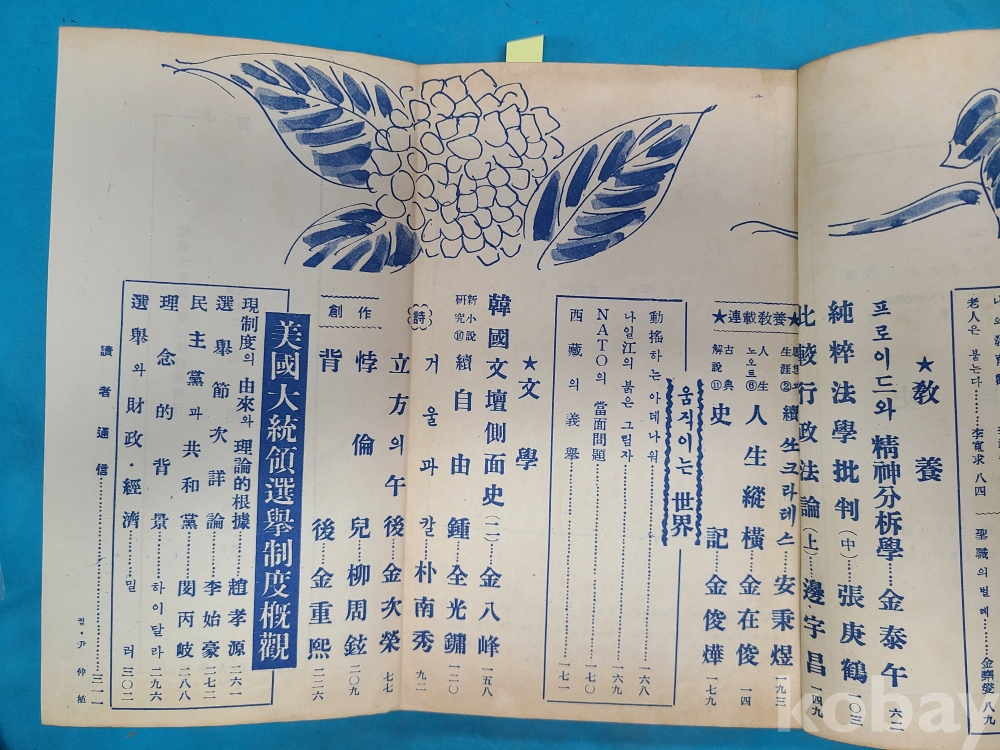 老人은 묻는다……李寬求 八四
聖職의 벌레……金 八九
★敎養
프로이드와 精神分析學……金泰午 六二
純粹法學批判(中)……張庚鶴 一〇三
比較行政法論(上)邊宇昌 一四九
★連載敎養★
生涯② 續 쏘크라테스 安秉煜 一九三
人生노오트⑥ 人生縱橫……金在俊 一四
古典解說⑪ 史記……金俊燁 一七九
움직이는 世界
動搖하는 아데나워……一六八
나일江의 붉은 그림자……一六九
NATO의 當面問題……一七〇
西藏의 義擧……一七一
★文學
韓國文壇側面史(二)……金八峰 一五八
新小說硏究⑩ 續 自由鍾……全光鏞 一二〇
詩
거울과 칼……朴南秀 九二
立方의 午後……金次榮 七七
創作
悖倫兒……柳周鉉 二〇九
背後……金重熙 二二六
美國大統領選擧制度槪觀
現制度의 由來와 理論的根據……趙孝源 二六一
選擧節次詳論……李始豪 二七二
民主黨과 共和黨……閔丙岐 二八八
理念的 背景……하이탈라 二九六
選擧와 財政·經濟……밀러 三〇二
讀者通信……三一一
컽·尹仲植
kobay